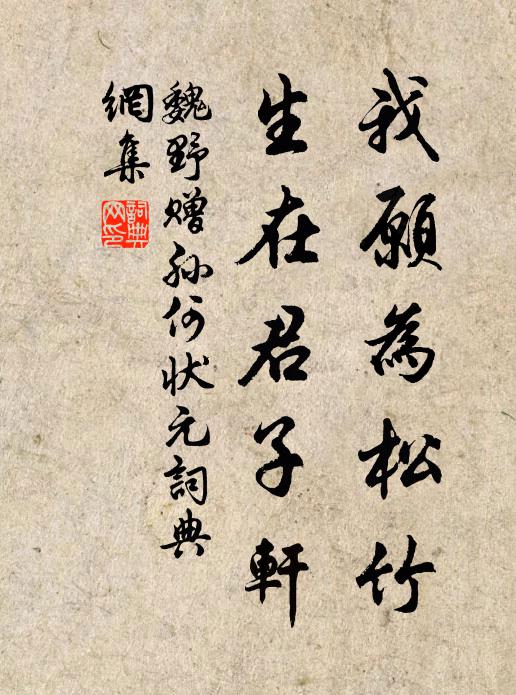 我願為松竹
生在君子軒
魏野贈孫何状元詞典
網集
詞典
网印